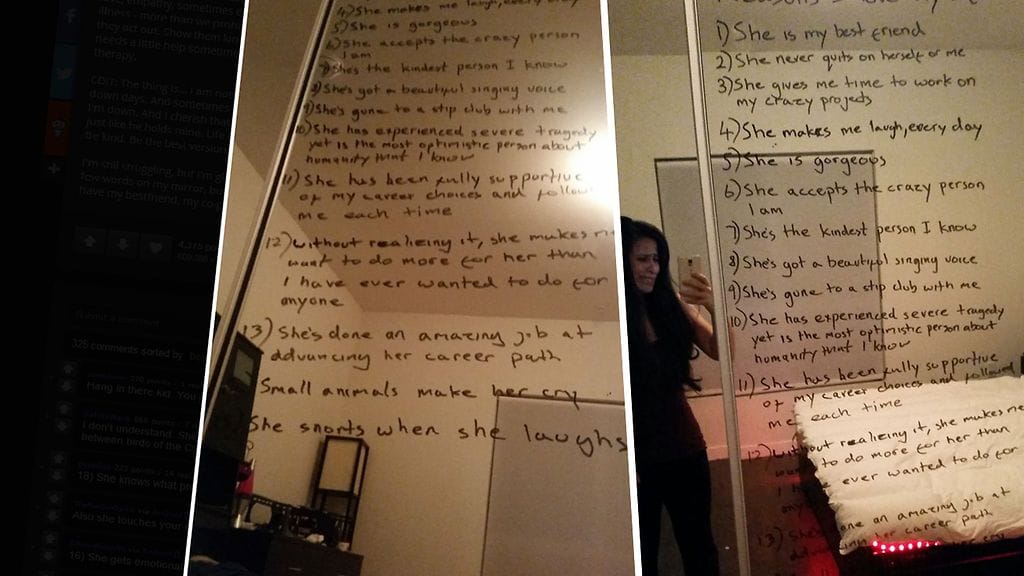 empathy, sometimes
illness - more than we
they act out. Show them
needs a little help sometimes
therapy.
EDIT: The thing is... I am not
down days. And sometimes
I'm down. And I cherish that
just like he holds mine. Life
Be kind. Be the best version
I'm still struggling, but I'm
few words on my mirror, but
have my bestfriend, my
Submit a comment
325 comments sorted by
Hang in there kid. You
I don't understand. She
between birds of the
18) She knows what
Also she touches your
16) She gets emotional
4) She makes me laugh, every day
5) She is gorgeous
6) She accepts the crazy person
I am
7) She's the kindest person I know
8) She's got a beautiful singing voice
9) She's gone to a stip club with me
10) She has experienced severe tragedy
yet is the most optimistic person about
humanity that I know
11) She has been fully supportive
of my career choices and followed
me each time
12) Without realizing it, she makes me
want to do more for her than
I have ever wanted to do for
anyone
13) She's done an amazing job at
advancing her career path
Small animals make her cry
She snorts when she laughs
Reasons I love my
1) She is my best friend
2) She never quits on herself or me
3) She gives me time to work on
my crazy projects
4) She makes me laugh, every day
5) She is gorgeous
6) She accepts the crazy person
I am
7) She's the kindest person I know
8) She's got a beautiful singing voice
9) She's gone to a stip club with me
10) She has experienced severe tragedy
yet is the most optimistic person about
humanity that I know
11) She has been fully supportive
of my career choices and followed
me each time
12) Without realizing it, she makes me
want to do more for her than
I have ever wanted to do for
any
13) She's done an amazing job at
advancing her career path
her cry